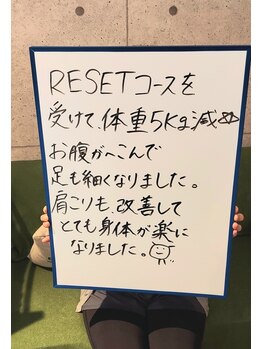 RESETコースを
受けて、体重5Kg減
お腹がへこんで
足も細くなりました。
肩こりも、改善して
とても身体が楽に
なりました。